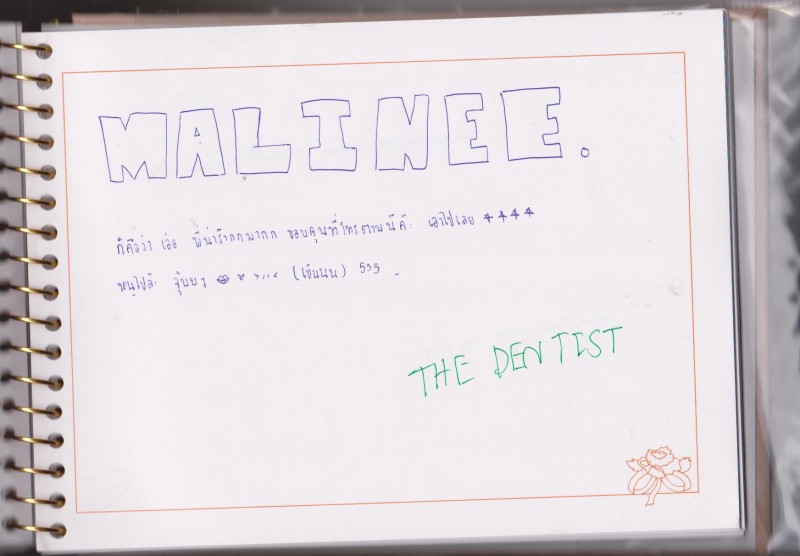 MALINEE.
ก็คือว่า เอ่อ พี่น่ารักกกมากก ขอบคุนที่โทรตามนี้ค้ะ เอาไปเลย ★★★★
หนูไปล้ะ จุ๊บบๆ (เขินนน) 555
THE DENTIST